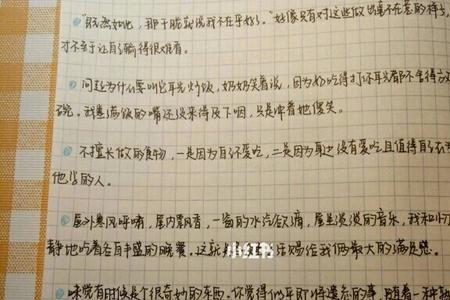 "既然如此，那干脆就说我不在乎好了。"好像只有对这些做出毫不在意的样子，
才不至于让自己输得很难看。
问起为什么要叫它耳光炒饭，奶奶笑着说，因为好吃得打你耳光都不舍得放
碗。我塞满饭的嘴还没来得及下咽，只是冲着她傻笑。
不擅长做的食物，一是因为自己不爱吃，二是因为身边没有爱吃且值得自己
他当的人。
屋外寒风呼啸，屋内飘香，一窗的水汽
的音乐，我和
静地吃着各自丰盛的晚餐。这就
赐给我们最大的满足感。
味觉有时候是个很奇妙的东西。你觉得似乎即将遗忘的事，随着一种
小红书